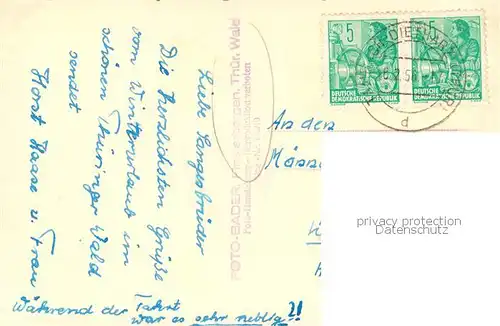 Liebe Sangesbrüder
Die herzlichsten Grüße
vom Winterurlaub im
schönen Thüringer Wald
sendet
Horst Haase u. Frau
Während der Fahrt
war es sehr neblig!!
FOTO-BADER, Thür. Wald
An den
Männer
5
DEUTSCHE
DEMOKRATISCHE REPUBLIK
5
DEUTSCHE
DEMOKRATISCHE REPUBLIK
privacy protection
Datenschutz